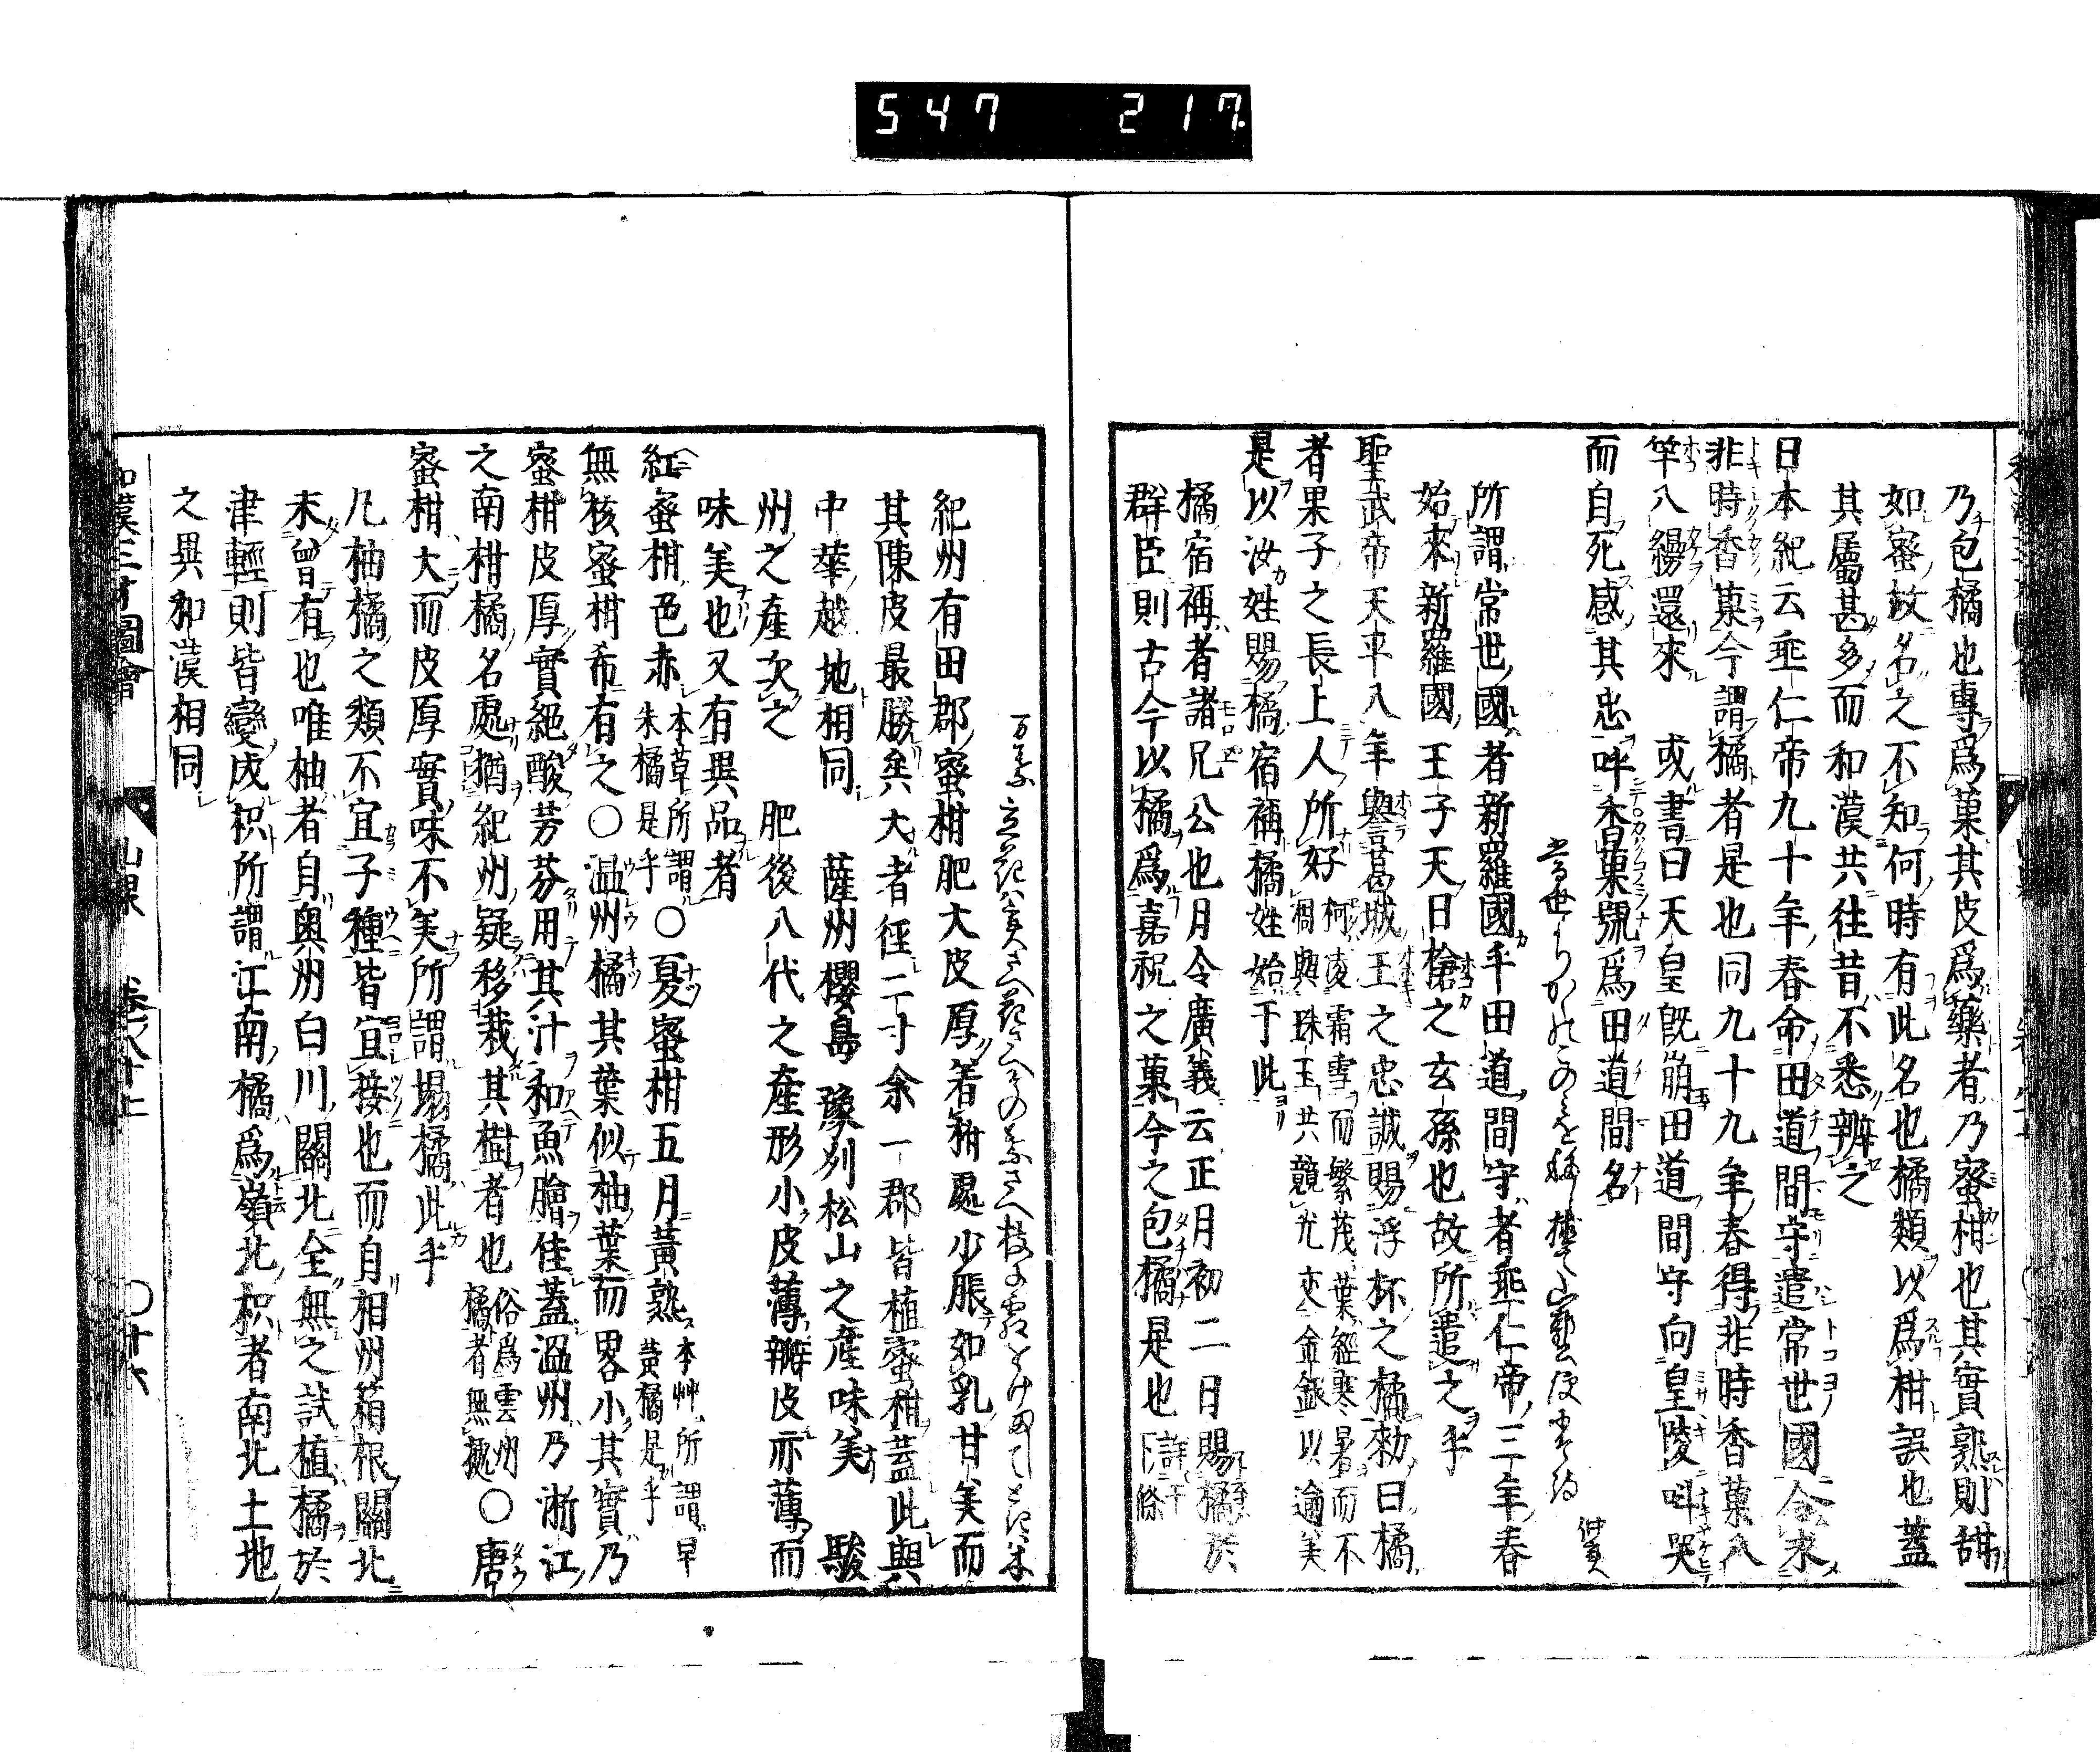 547 217
乃包橘也專爲菓其皮爲藥者乃蜜柑也其實熟則甜
如蜜故名之不知何時有此名也橘類以爲柑誤也蓋
其屬甚多而和漢共往昔不悉辨之
日本紀云垂仁帝九十年春命田道間守遣常世國令求
非時香菓今謂橘者是也同九十九年春得非時香菓八
竿八縵還來 或書曰天皇既崩田道間守向皇陵叫哭
而自死感其忠呼香菓號爲田道間名
仲實
所謂常世國者新羅國乎田道間守者垂仁帝三年春
始來新羅國王子天日槍之玄孫也故所遣之乎
聖武帝天平八年譽葛城王之忠誠賜浮杯之橘勑曰橘
者果子之長上人所好柯凌霜雪而繁茂葉經寒暑而不
凋與珠玉共競光交金銀以逾美
是以汝姓賜橘宿禰橘姓始于此
橘宿禰者諸兄公也月令廣義云正月初二日賜橘於
群臣則古今以橘爲嘉祝之菓今之包橘是也詳于下條
万葉 立花は實さへ花さへその葉さへ枝に霜
紀州有田郡蜜柑肥大皮厚着柑處少脹如乳甘美而
其陳皮最勝矣大者徑二寸余一郡皆植蜜柑蓋此與
中華越地相同 薩州櫻島豫列松山之產味美 駿
州之產次之 肥後八代之產形小皮薄瓣皮亦薄而
味美也又有異品者
紅蜜柑色赤本草所謂朱橘是乎○夏蜜柑五月黃熟本艸所謂早黃橘是乎
無核蜜柑希有之○温州橘其葉似柚葉而畧小其實乃
蜜柑皮厚實絕酸芳芬用其汁和魚膾佳蓋溫州乃浙江
之南柑橘名處猶紀州疑移栽其樹者也俗爲雲州橘者無據○唐
蜜柑大而皮厚實味不美所謂塌橘此乎
凡柚橘之類不宜子種皆宜接也而自相州箱根關北
未曾有也唯柚者自奧州白川關北全無之試植橘於
津輕則皆變成枳所謂江南橘爲嶺北枳者南北土地
之異和漢相同
和漢三才圖會 山果 卷八十上 ○廿六